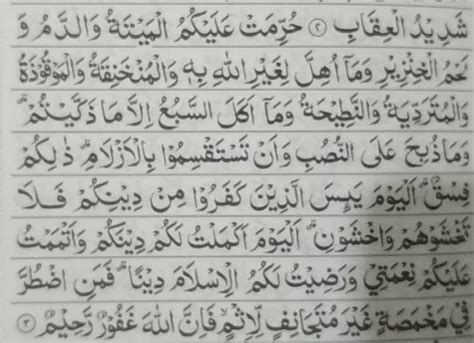 شَدِيدُ الْعِقَابِ ۝٢ حُرِّمَتْ عَلَيْكُمُ الْمَيْتَةُ وَالدَّمُ وَ
لَحْمُ الْخِنْزِيرِ وَمَآ اُهِلَّ لِغَيْرِ اللّٰهِ بِهٖ وَالْمُنْخَنِقَةُ وَالْمَوْقُوْذَةُ
وَالْمُتَرَدِّيَةُ وَالنَّطِيْحَةُ وَمَآ اَكَلَ السَّبُعُ اِلَّا مَا ذَكَّيْتُمْ
وَمَا ذُبِحَ عَلَى النُّصُبِ وَاَنْ تَسْتَقْسِمُوْا بِالْاَزْلَامِ ذٰلِكُمْ
فِسْقٌ اَلْيَوْمَ يَئِسَ الَّذِيْنَ كَفَرُوْا مِنْ دِيْنِكُمْ فَلَا
تَخْشَوْهُمْ وَاخْشَوْنِ اَلْيَوْمَ اَكْمَلْتُ لَكُمْ دِيْنَكُمْ وَاَتْمَمْتُ
عَلَيْكُمْ نِعْمَتِيْ وَرَضِيْتُ لَكُمُ الْاِسْلَامَ دِيْنًا فَمَنِ اضْطُرَّ
فِيْ مَخْمَصَةٍ غَيْرَ مُتَجَانِفٍ لِّاِثْمٍ فَاِنَّ اللّٰهَ غَفُوْرٌ رَّحِيْمٌ ۝٣